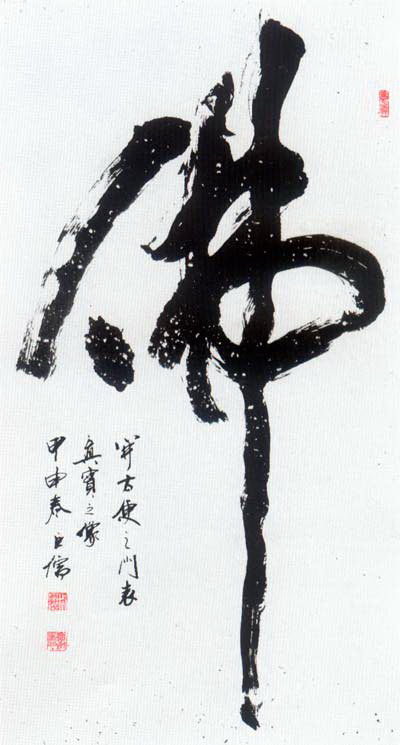 佛
開方便之門表
真實之像
甲申春